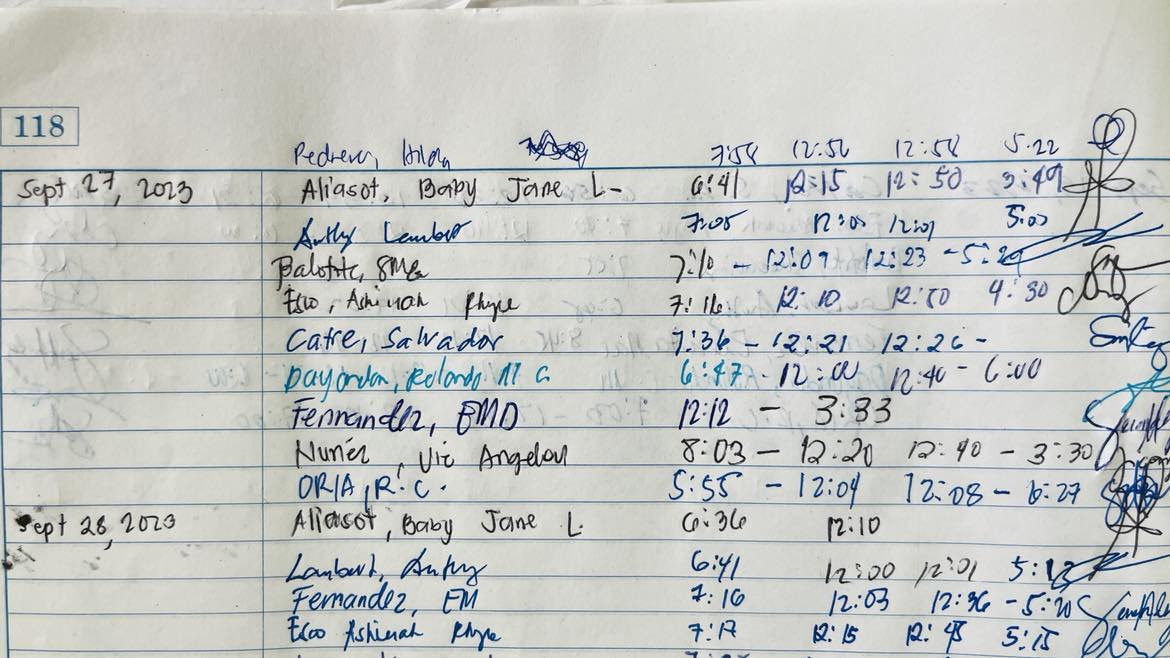 118
Pedrera, Hilda 7:58 12:56 12:58 5:22
Sept 27, 2023 Aliasot, Baby Jane L- 6:41 12:15 12:50 3:49
Lambert 7:05 12:00 12:01 5:03
7:10 - 12:09 12:23 - 5:29
Esco, Ashinah Rhye 7:16 12:10 12:50 4:30
Catre, Salvador 7:36 - 12:21 12:26 -
Dayondon, Rolando 6:47 - 12:00 12:40 - 6:00
Fernandez, EMD 12:12 - 3:33
Nuñez, Vic Angelou 8:03 - 12:20 12:40 - 3:30
ORIA, R.C. 5:55 - 12:04 12:08 - 6:27
Sept 28, 2023 Aliasot, Baby Jane L. 6:36 12:10
Lambert, 6:41 12:00 12:01 5:12
Fernandez, EM 7:16 12:03 12:36 - 5:20
Esco Ashinah Rhye 7:17 12:15 12:45 5:15